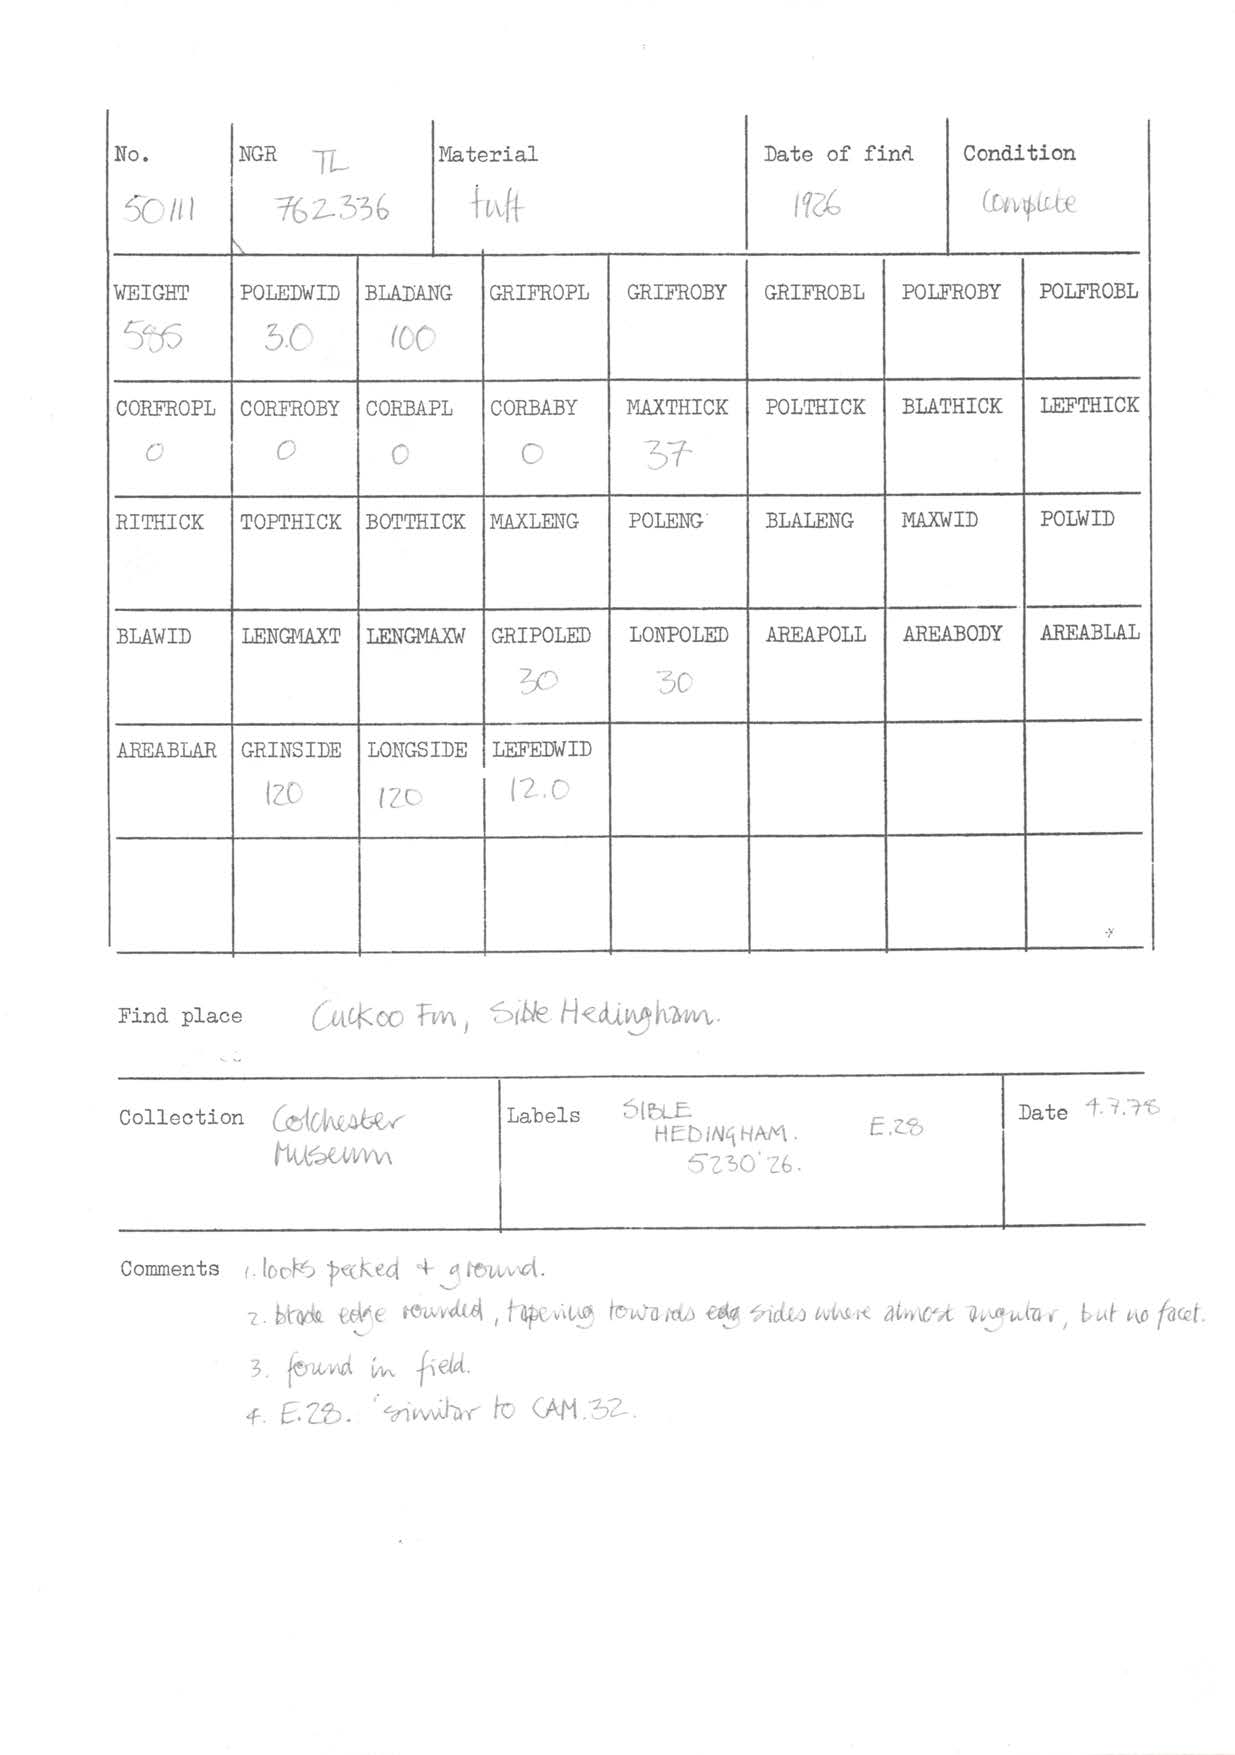 No. NGR TL Material Date of find Condition
50111 762336 tuff 1926 Complete
WEIGHT POLEDWID BLADANG GRIFROPL GRIFROBY GRIFROBL POLFROBY POLFROBL
3.0 100
CORFROPL CORFROBY CORBAPL CORBABY MAXTHICK POLTHICK BLATHICK LEFTHICK
0 0 0 0 37
RITHICK TOPTHICK BOTTHICK MAXLENG POLENG BLALENG MAXWID POLWID
BLAWID LENGMAXT LENGMAXW GRIPOLED LONPOLED AREAPOLL AREABODY AREABLAL
30 30
AREABLAR GRINSIDE LONGSIDE LEFEDWID
120 120 12.0
Find place Cuckoo Fm, Sible Hedingham.
Collection Colchester Museum
Labels SIBLE
HEDINGHAM. E.28
5230'26.
Date 4.7.78
Comments 1. looks pecked + ground.
2. blade edge rounded, tapering towards sides where almost angular, but no facet.
3. found in field.
4. E.28. 'similar to CAM.32.